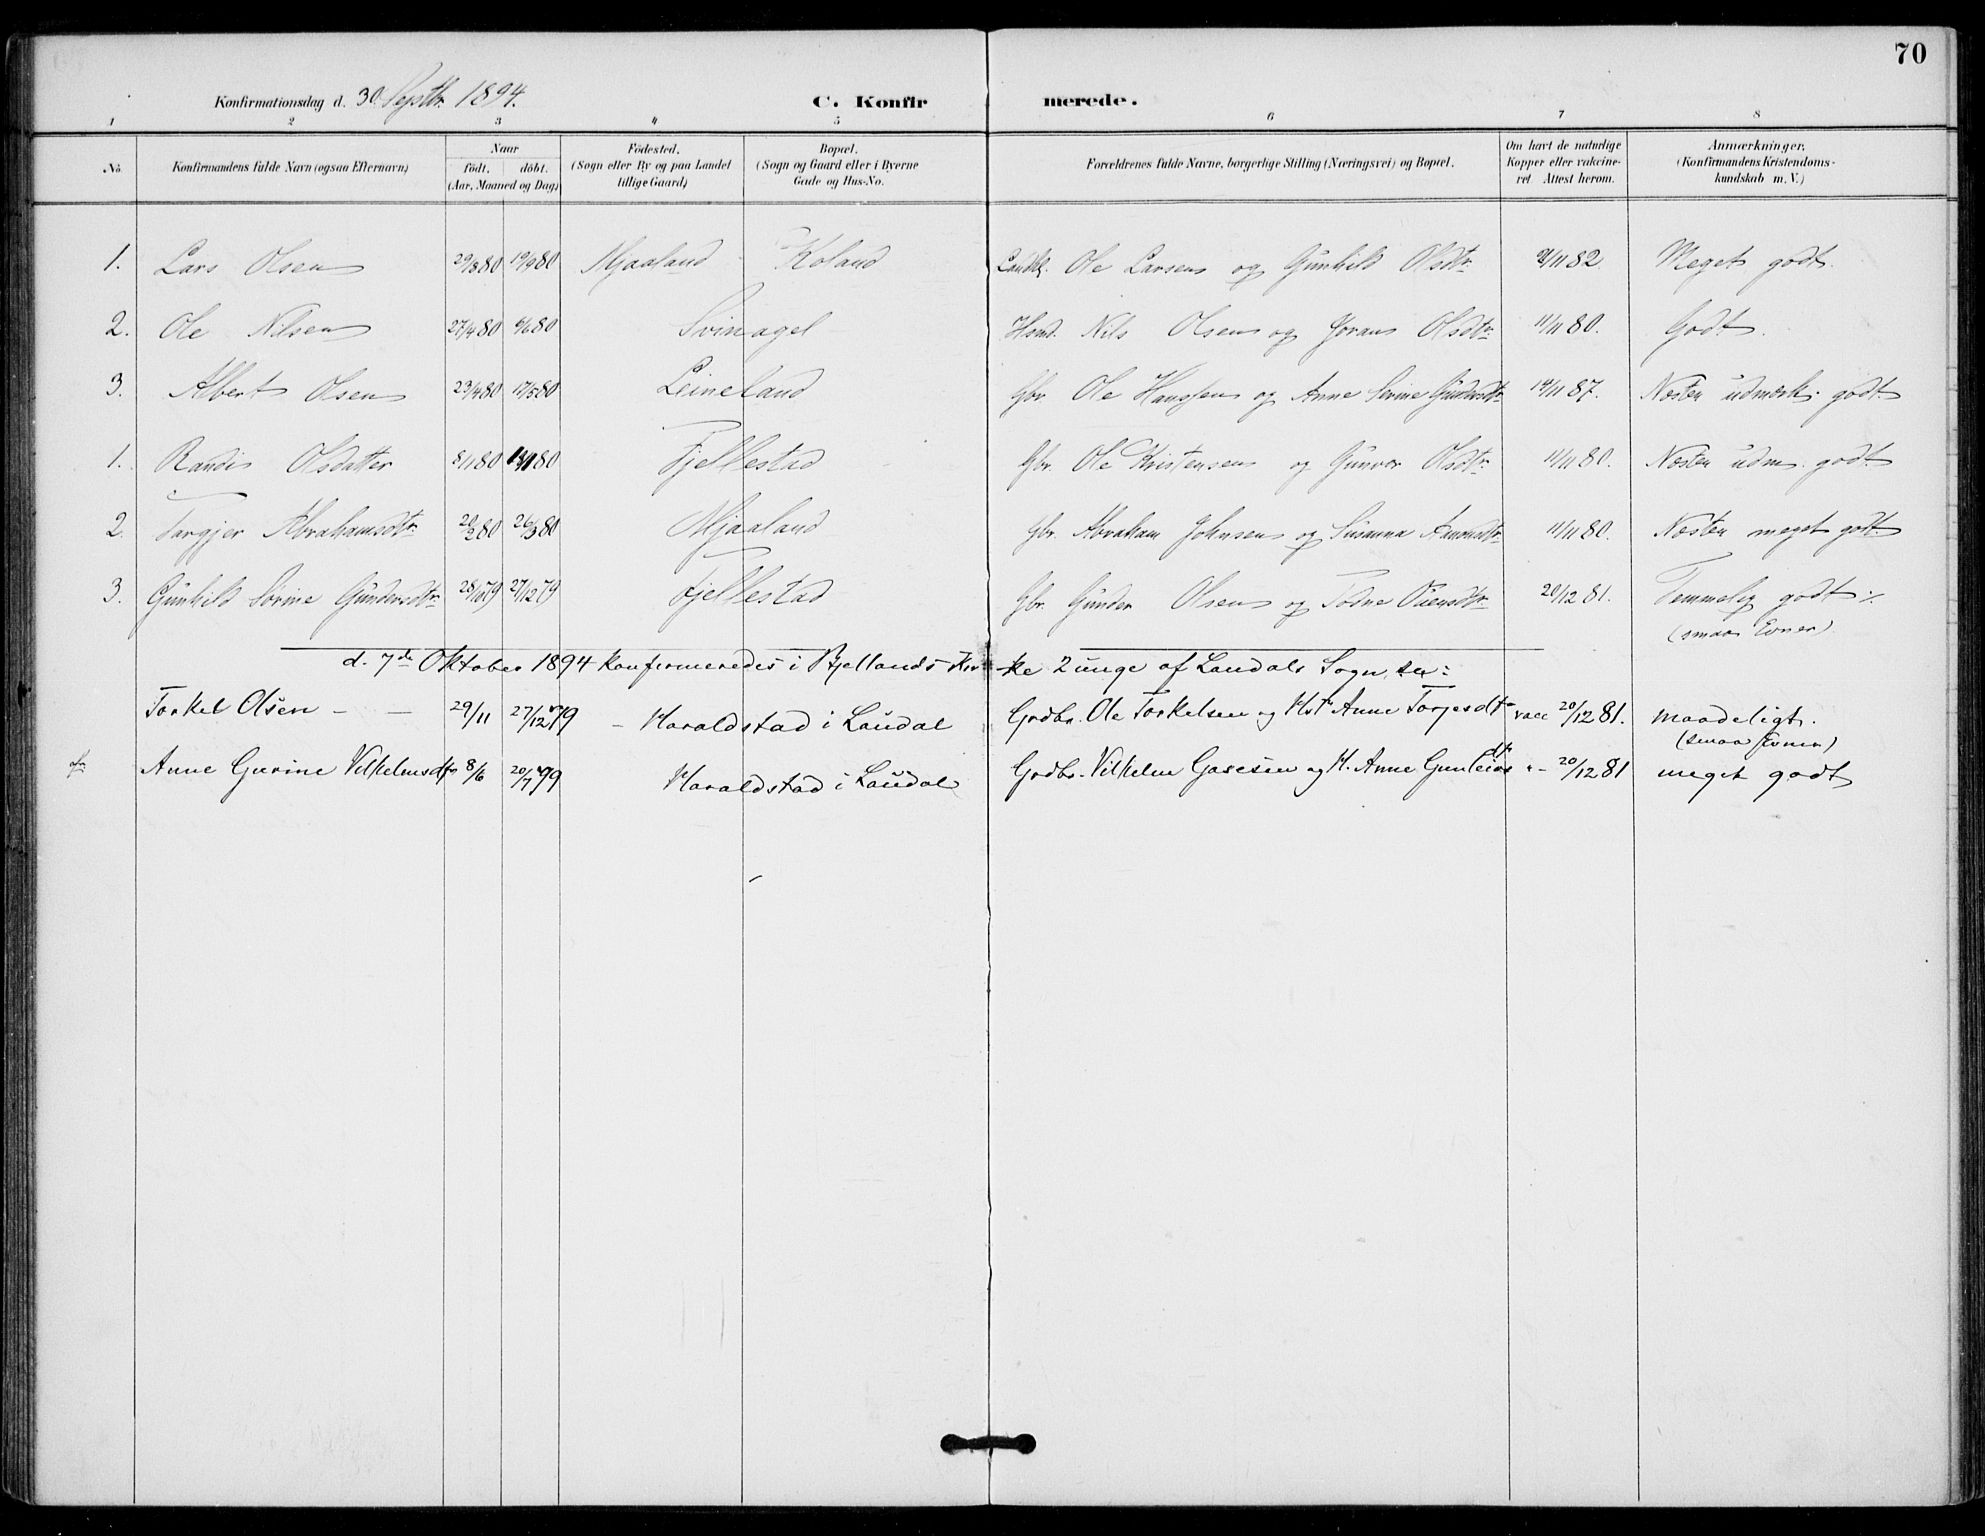 70
Konfirmationsdag d. 30 Septbr. 1894. C. Konfirmerede.
1 2 3 4 5 6 7 8
No. Konfirmandens fulde Navn (ogsaa Efternavn) Naar födt. döbt. (Aar, Maaned og Dag) Födested. (Sogn eller By og paa Landet tillige Gaard) Bopæl. (Sogn og Gaard eller i Byerne Gade og Hus-No. Forældrenes fulde Navne, borgerlige Stilling (Næringsvei) og Bopæl. Om havt de naturlige Kopper eller vakcineret. Attest herom. Anmærkninger, (Konfirmandens Kristendomskundskab m. V.)
1. Lars Olsen 29/8 80 19/9 80 Mjaaland Koland Ole Larsen og Gunhild Olsdtr /11 82 Meget godt.
2. Ole Nilsen 27/4 80 6/6 80 Svinagel Hsmd. Nils Olsen og Joran Olsdtr 11/11 80. Godt.
3. Albert Olsen 23/4 80 17/5 80 Leineland Gbr. Ole Hanssen og Anne Serine Gundersdtr 14/11 87. Næsten udmærk. godt
1. Randi Olsdatter 5/11 80 80 Fjellestad Gbr. Ole Kristensen og Gunvor Olsdtr 11/11 80. Næsten udm. godt
2. Targjer Abrahamsdtr. 20/2 80 26/3 80 Mjaaland Gbr. Abraham Johnsen og Susanna Aanensdtr 11/11 80. Næsten meget godt
3. Gunhild Sørine Gundersdtr. 28/10 79 27/12 79 Fjellestad Gbr. Gunder Olsen og Todne Ouensdtr 20/12 81. Temmelig godt
(smaa Evner)
d. 7de Oktober 1894 konfirmeredes i Bjellands Kirke 2 unge af Laudals Sogn,
Torkel Olsen - - 29/11 27/12 79 - Haraldstad i Laudal Grdbr. Ole Torkelsen og Hst. Anne Torjesdtr vacc 20/12 81. maadeligt.
(smaa Evner)
Anne Gurine Vilhelmsdtr 8/6 20/7 79 Haraldstad i Laudal Grdbr. Vilhelm og H. Anne Gunleiksdtr " - 20/12 81 meget godt